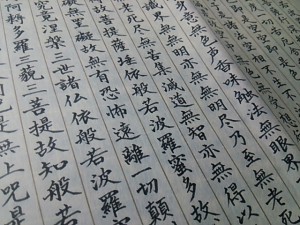 意無色声香味触法無眼界
無明亦無無明尽乃至無老死
老死尽無苦集滅道無智亦無得以
菩提薩埵依般若波羅蜜多故
罣礙故無有恐怖遠離一切顛
究竟涅槃三世諸仏依般若波羅
阿耨多羅三藐三菩提故知般若
是無上呪是